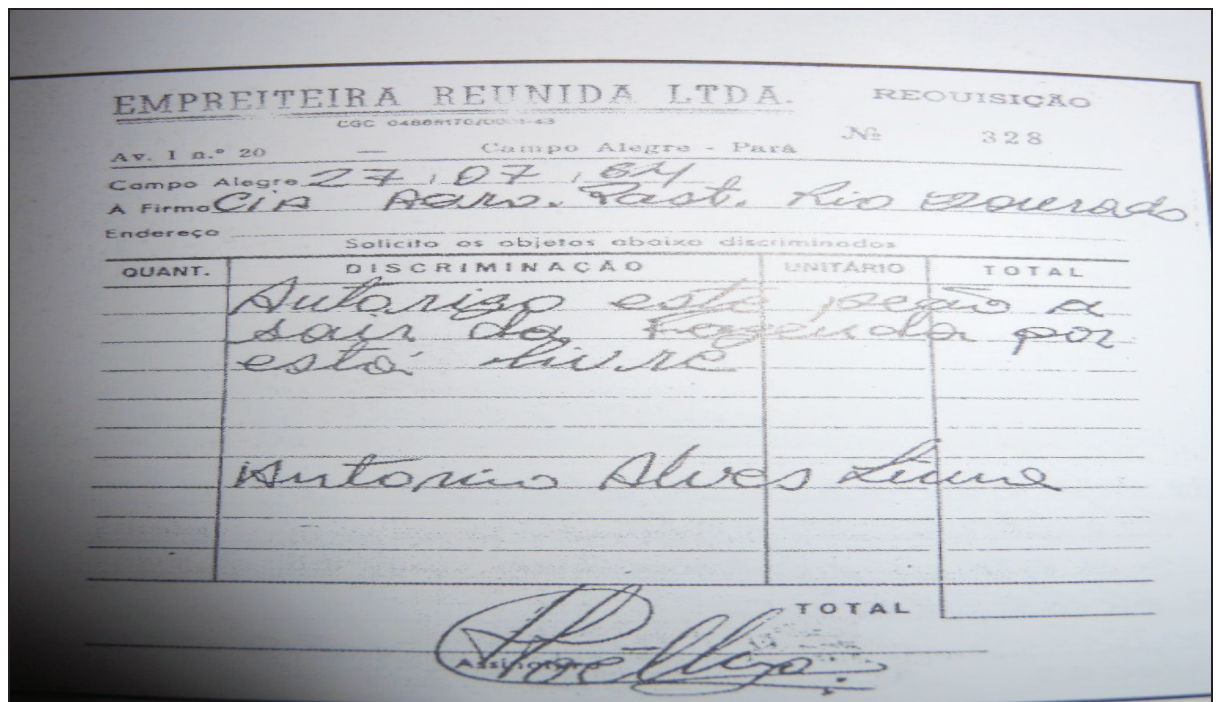 EMPREITEIRA REUNIDA LTDA. REQUISIÇÃO
CGC 04865170/0001-43
Av. I n.º 20 — Campo Alegre - Pará Nº 328
Campo Alegre 27, 07, 84
A Firma CIA Agro. Past. Rio Dourado
Endereço
Solicito os objetos abaixo discriminados
QUANT. DISCRIMINAÇÃO UNITÁRIO TOTAL
Autorizo este peão a
sair da Fazenda por
está livre
Antonio Alves Lima
TOTAL
Assinatura